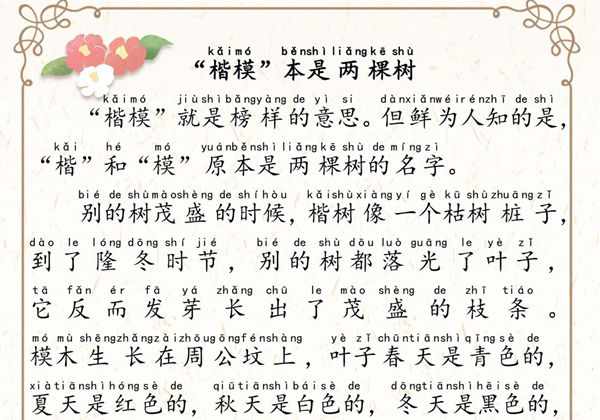 kǎi mó běn shì liǎng kē shù
“楷模”本是两棵树
kǎi mó jiù shì bǎng yàng de yì si dàn xiǎn wéi rén zhī de shì
“楷模”就是榜样的意思。但鲜为人知的是，
kǎi hé mó yuán běn shì liǎng kē shù de míng zì
“楷”和“模”原本是两棵树的名字。
bié de shù mào shèng de shí hòu kǎi shù xiàng yí gè kū shù zhuāng zǐ
别的树茂盛的时候，楷树像一个枯树桩子，
dào le lóng dōng shí jié bié de shù dōu luò guāng le yè zǐ
到了隆冬时节，别的树都落光了叶子，
tā fǎn ér fā yá zhǎng chū le mào shèng de zhī tiáo
它反而发芽长出了茂盛的枝条。
mó mù shēng zhǎng zài zhōu gōng fén shàng yè zǐ chūn tiān shì qīng sè de
模木生长在周公坟上，叶子春天是青色的，
xià tiān shì hóng sè de qiū tiān shì bái sè de dōng tiān shì hēi sè de
夏天是红色的，秋天是白色的，冬天是黑色的，